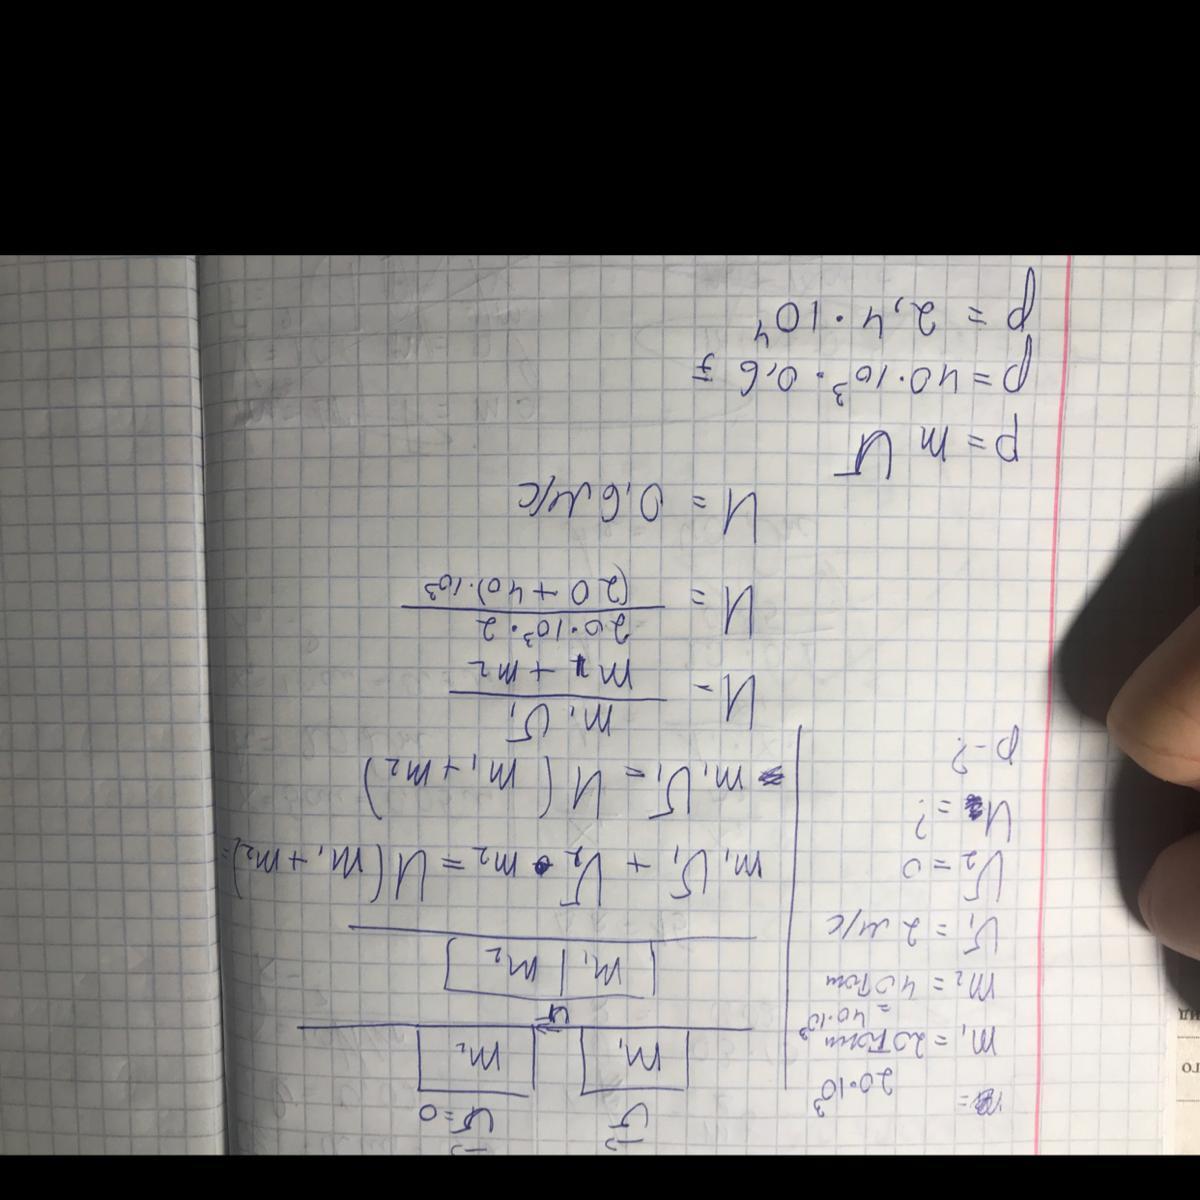 20·10³
m₁ = 20 тонн
m₂ = 40 тонн
= 40·10³
υ₁ = 2 м/с
υ₂ = 0
u = ?
p - ?
υ⃗
υ⃗ = 0
m₁
m₂
υ
m₁ | m₂
m₁υ₁ + υ₂ · m₂ = u(m₁ + m₂) =
m₁υ₁ = u(m₁ + m₂)
u - m₁υ₁ / m₁ + m₂
u = 20·10³·2 / (20 + 40)·10³
u = 0,6 м/с
p = m υ
p = 40·10³·0,6 =
p = 2,4·10⁴